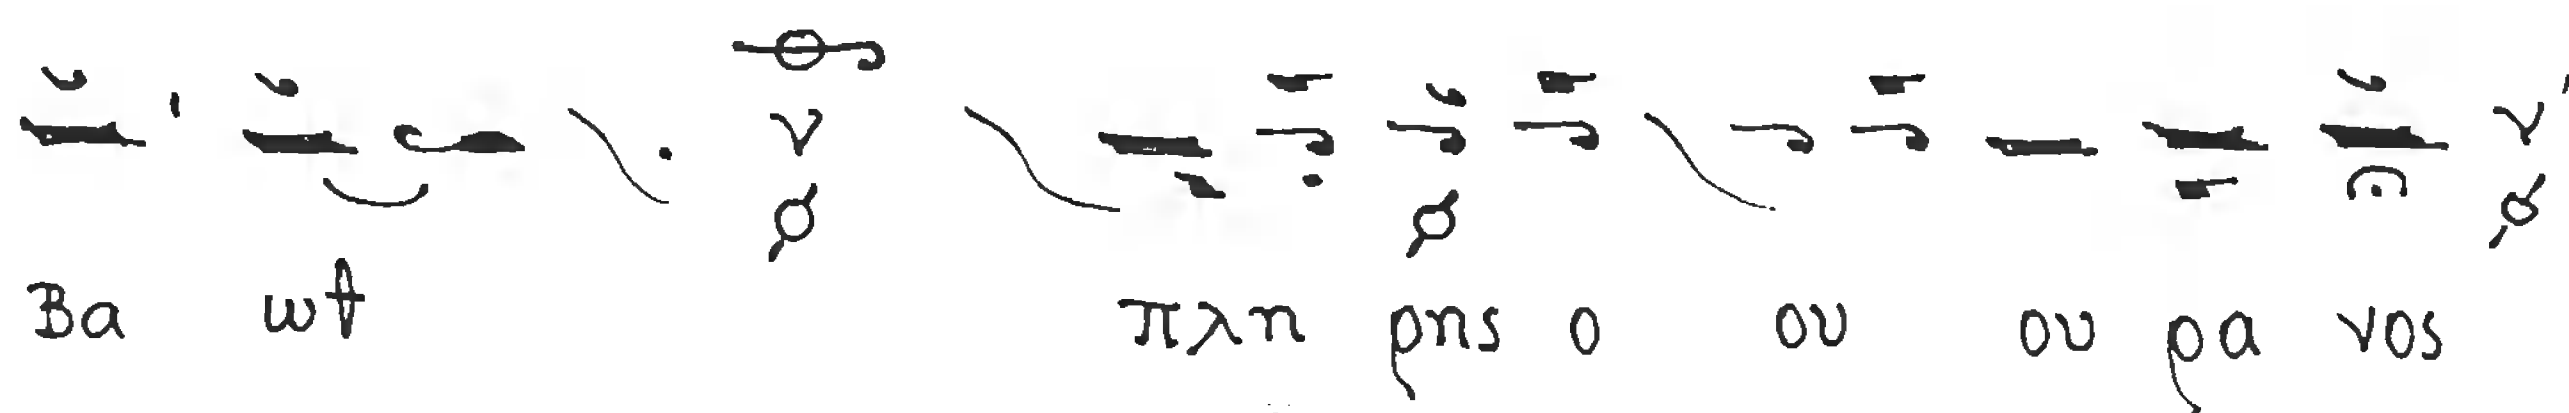 Βα ωθ πλη ρης ο ου ου ρα νος